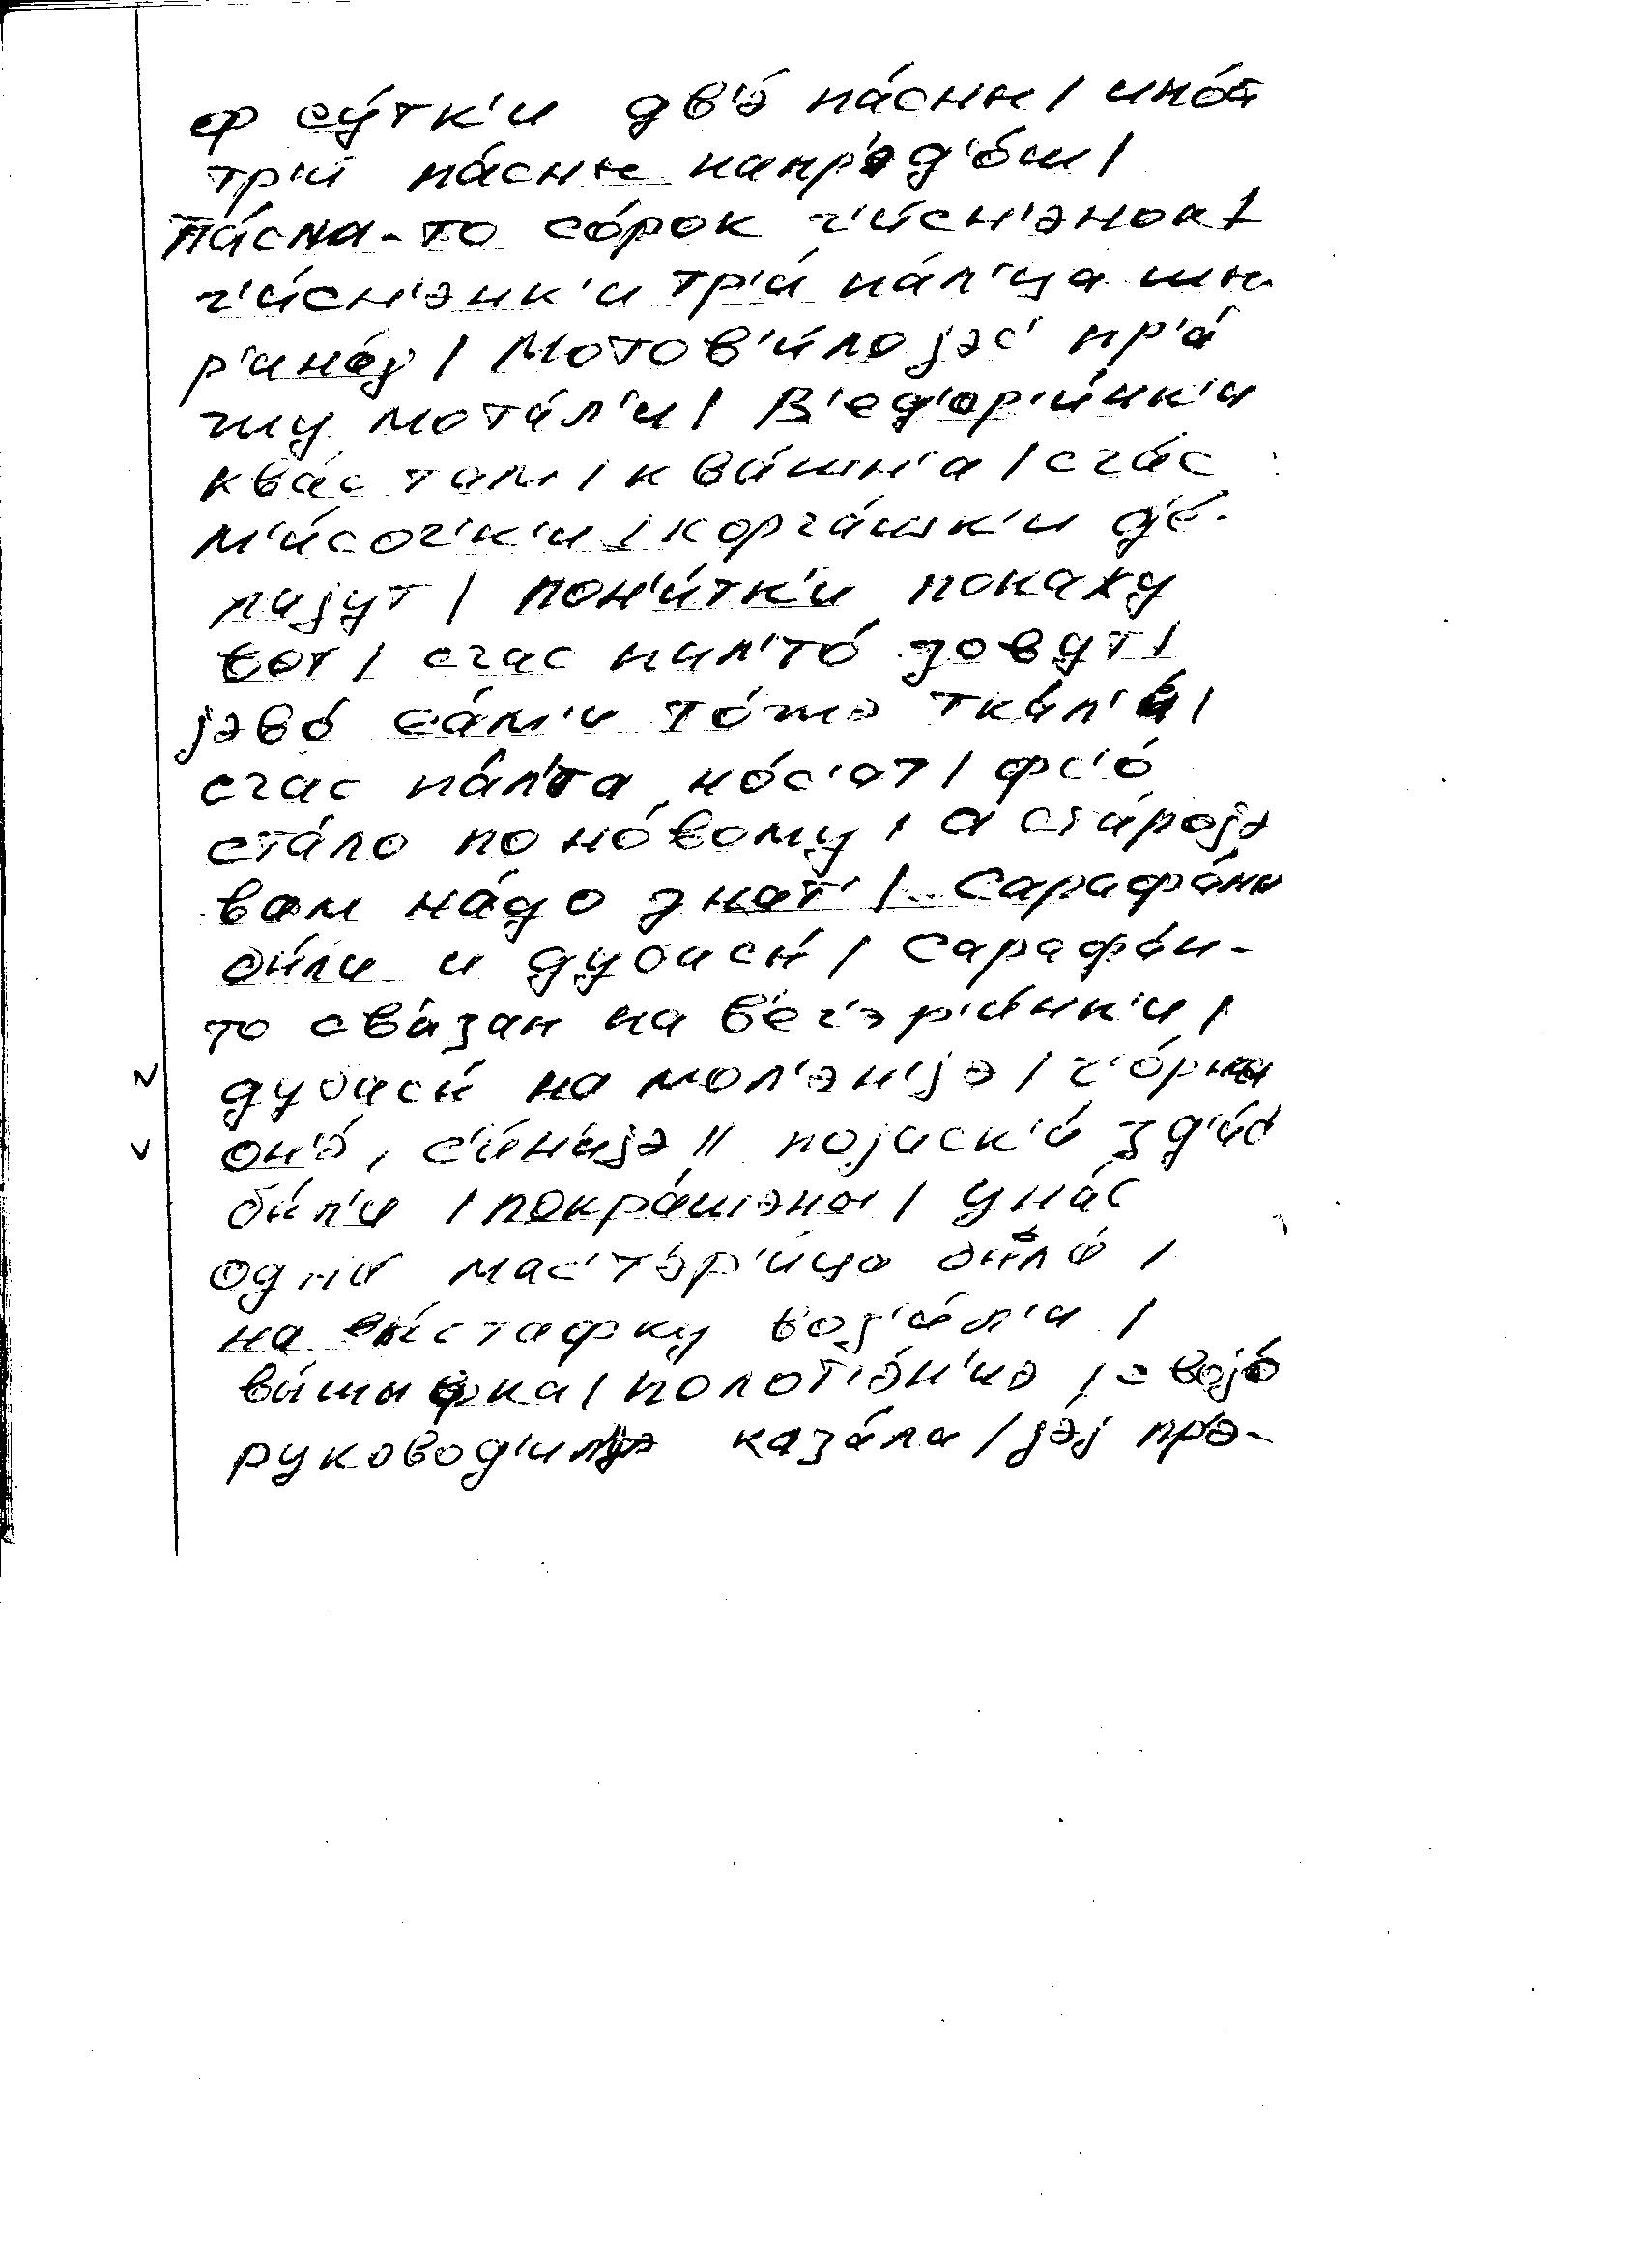 ф су́тк'и дв'э́ па́смы / ино́й
тр'и́ па́смы напр'эд'о́ш /
Па́сма-то со́рок ч'и́сн'энок /
ч'и́сн'энк'и тр'и́ па́л'ца шы
р'ино́j / Мотов'и́ло jэс' пр'а́
жу мота́л'и / В'ед'ор'и́нк'и
ква́с там / квашн'а / счас
м'и́соч'к'и / корча́шк'и д'е́-
лаjут / пон'и́тк'и покажу
вот / счас пал'то́ зовут /
jэво́ са́м'и то́жэ тка́л'и /
счас па́л'та но́с'ат / фс'о́
ста́ло по но́вому / а ста́роjэ
вам на́до знат' / Сарафа́ны
бы́ли и дубасы́ / Сарафа́н-
то св'а́зан на в'еч'эр'и́нк'и /
дубасы́ на мол'э́н'иjэ / ч'о́рны
он'э́, с'и́н'иjэ // поjаск'и́ зд'и́с'
бы́л'и / покра́шэны / у на́с
одна́ мас'т'эр'и́ца была́ /
на вы́стафку воз'и́л'и /
вы́шыфка / полот'э́н'цэ / своjо́
руковод'ил'jэ казала / jэj пр'э-